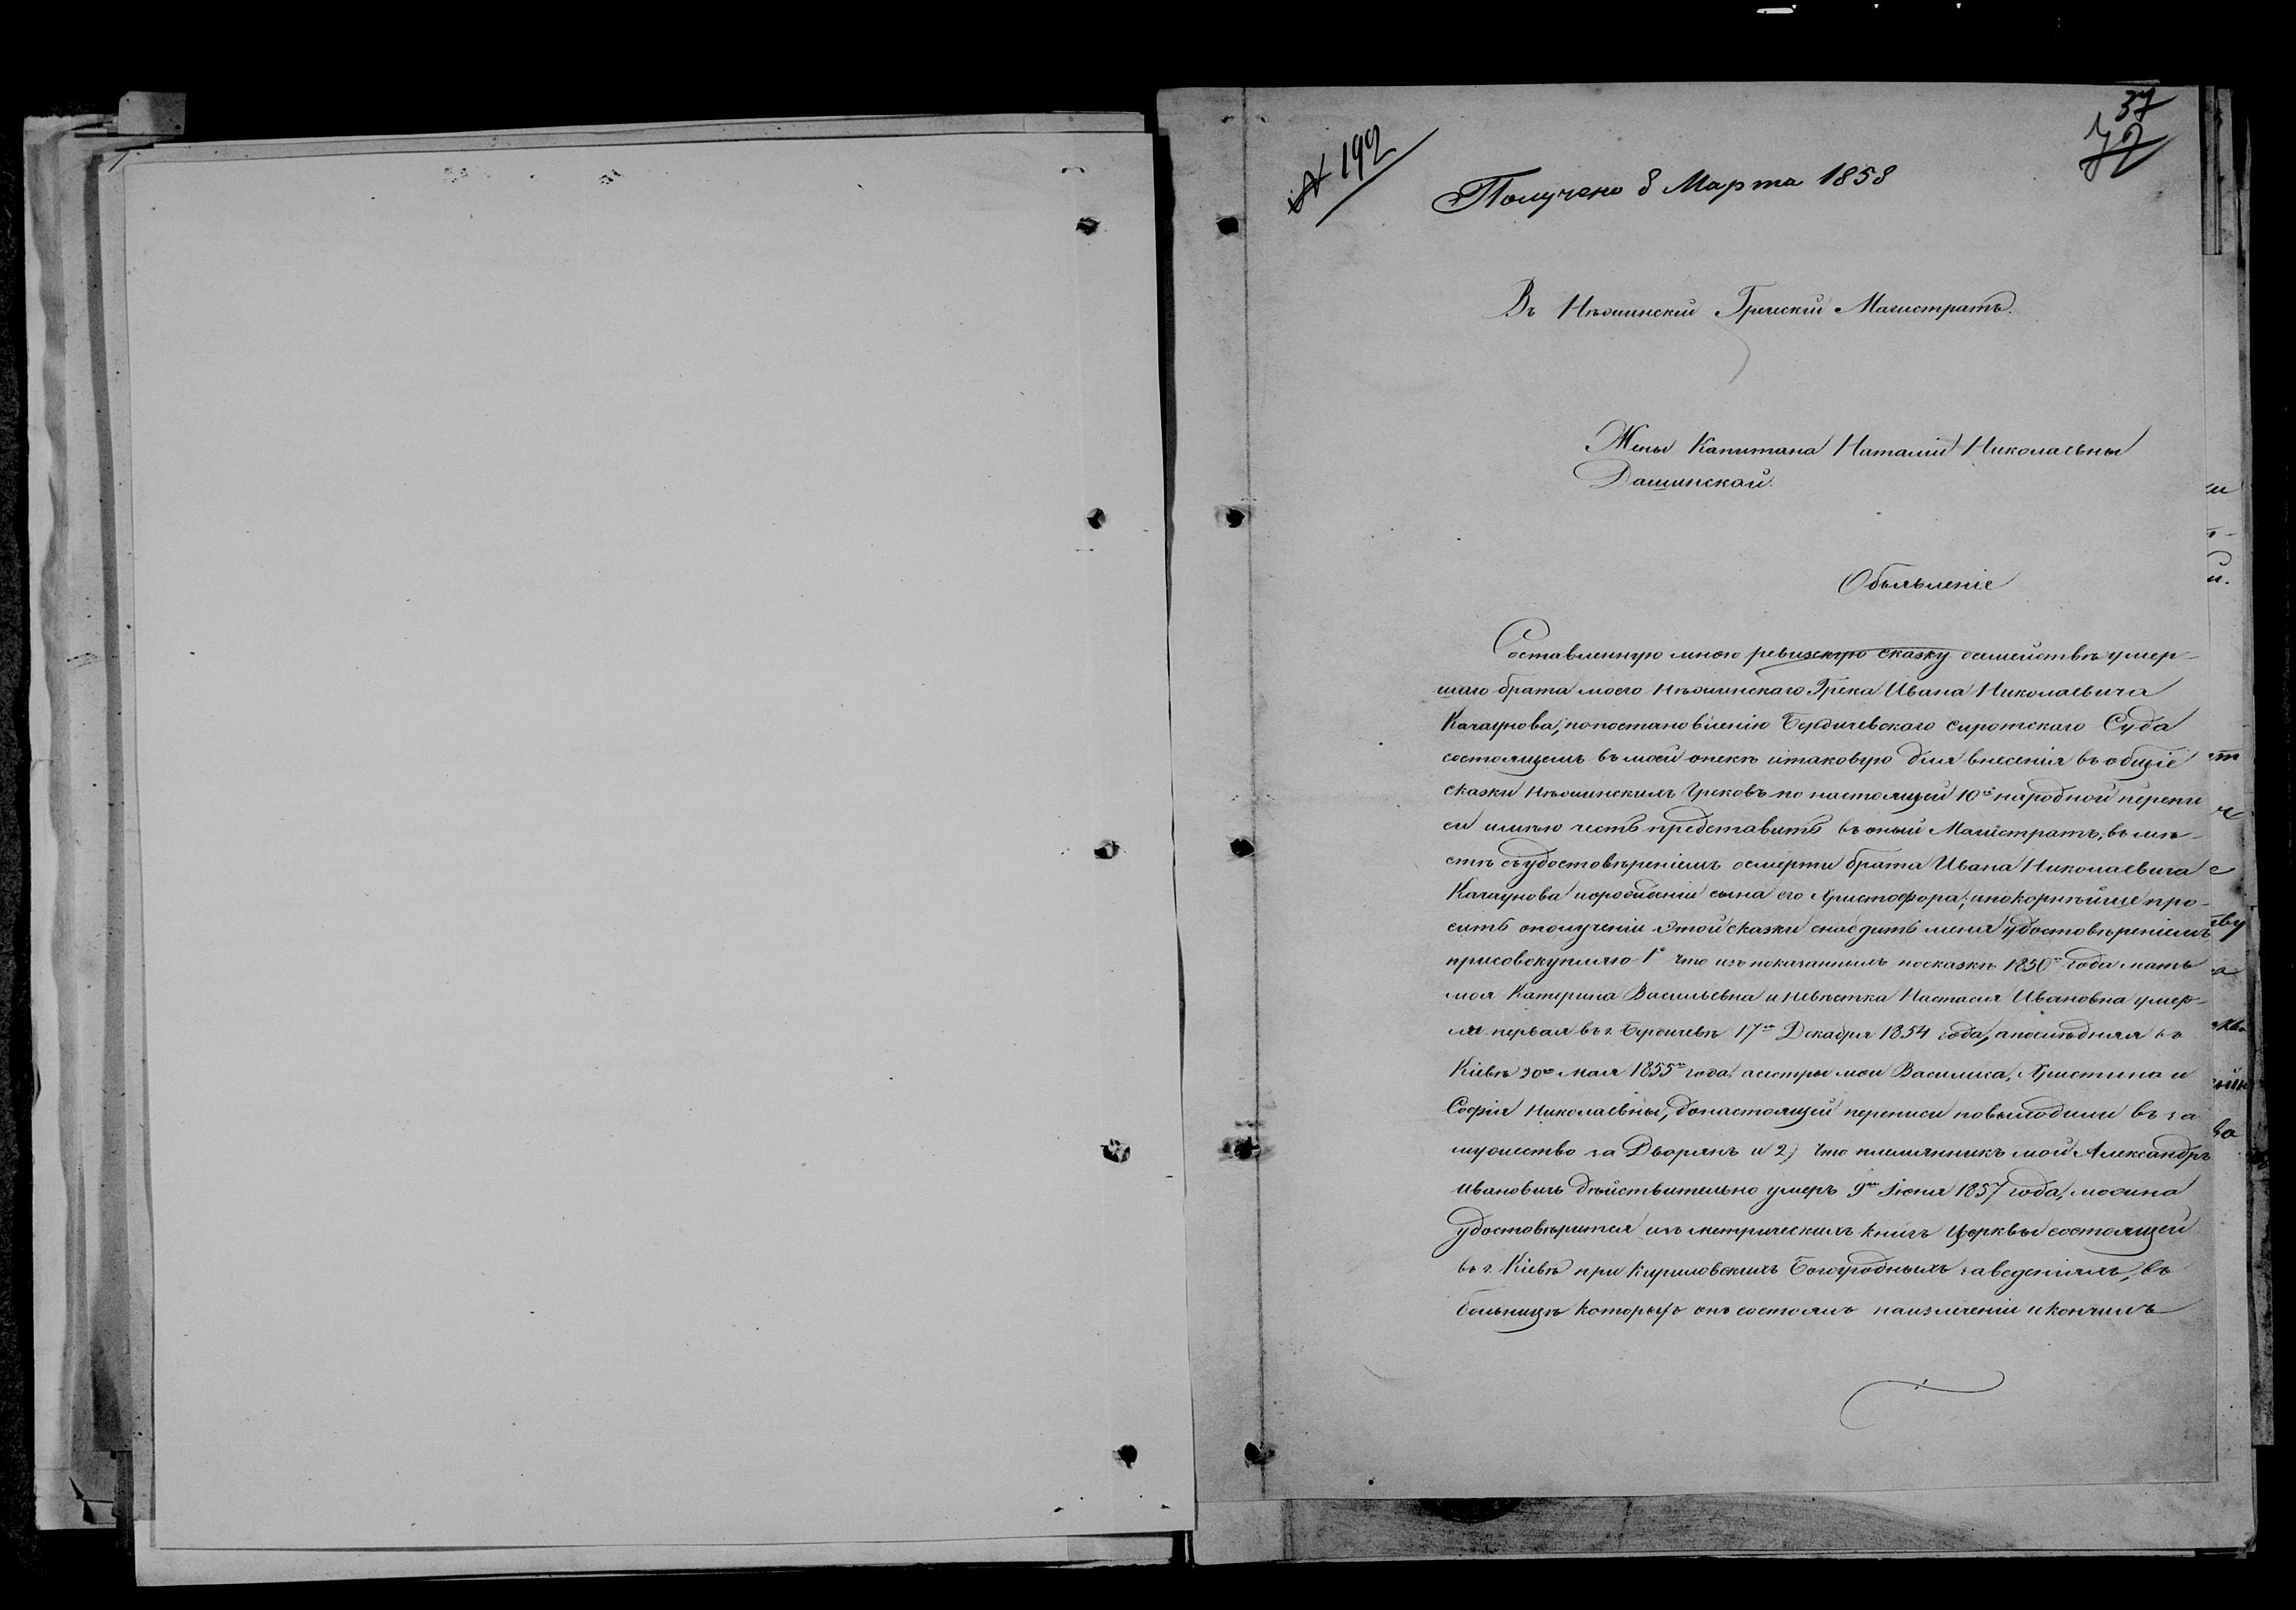 37
72
№ 192
Получено 8 Марта 1858
Въ Нѣжинскій Греческій Магистратъ.
Жены Капитана Наталіи Николаевны
Дашинской.
Объявленіе
Составленную мною ревизскую сказку осемействѣ умер-
шаго брата моего Нѣжинскаго Грека Ивана Николаевича
Качаунова, попостановленію Бердичевского сиротского Суда
состоящемъ въ моей опекѣ итаковую для внесенія въ общіе
сказки Нѣжинскихъ Грековъ по настоящей 10й народной перепи
си имѣю честь представить въ оный Магистратъ, вмѣ-
стѣ съудостовѣреніемъ осмерти брата Ивана Николаевича
Качаунова ирожденіи сына его Христофора; ипокорнѣйше про-
сить ополученіи этой сказки снабдить меня удостовѣреніемъ
присовокупляю 1е что изъ показанныхъ посказкѣ 1850го года мать
моя Катерина Васильевна и невѣстка Настасія Ивановна умер-
ли первая въ г. Бердичевѣ 17го Декабря 1854 года, апослѣдняя въ
Кіевѣ 30го мая 1855го года; асестры мои Василиса, Христина и
Софія Николаевны, донастоящей переписи повыходили въ за
мужество за Дворянъ и 2) Что племянникъ мой Александръ
Ивановичъ дѣйствительно умеръ 9го Іюня 1857 года, можна
удостоверится изъ метрическихъ книгъ Церквы состоящей
въ г. Кіевѣ при Кириловскихъ Богоугодныхъ заведеніяхъ, въ
больницѣ которыхъ онъ состоялъ наизлеченіи икончилъ